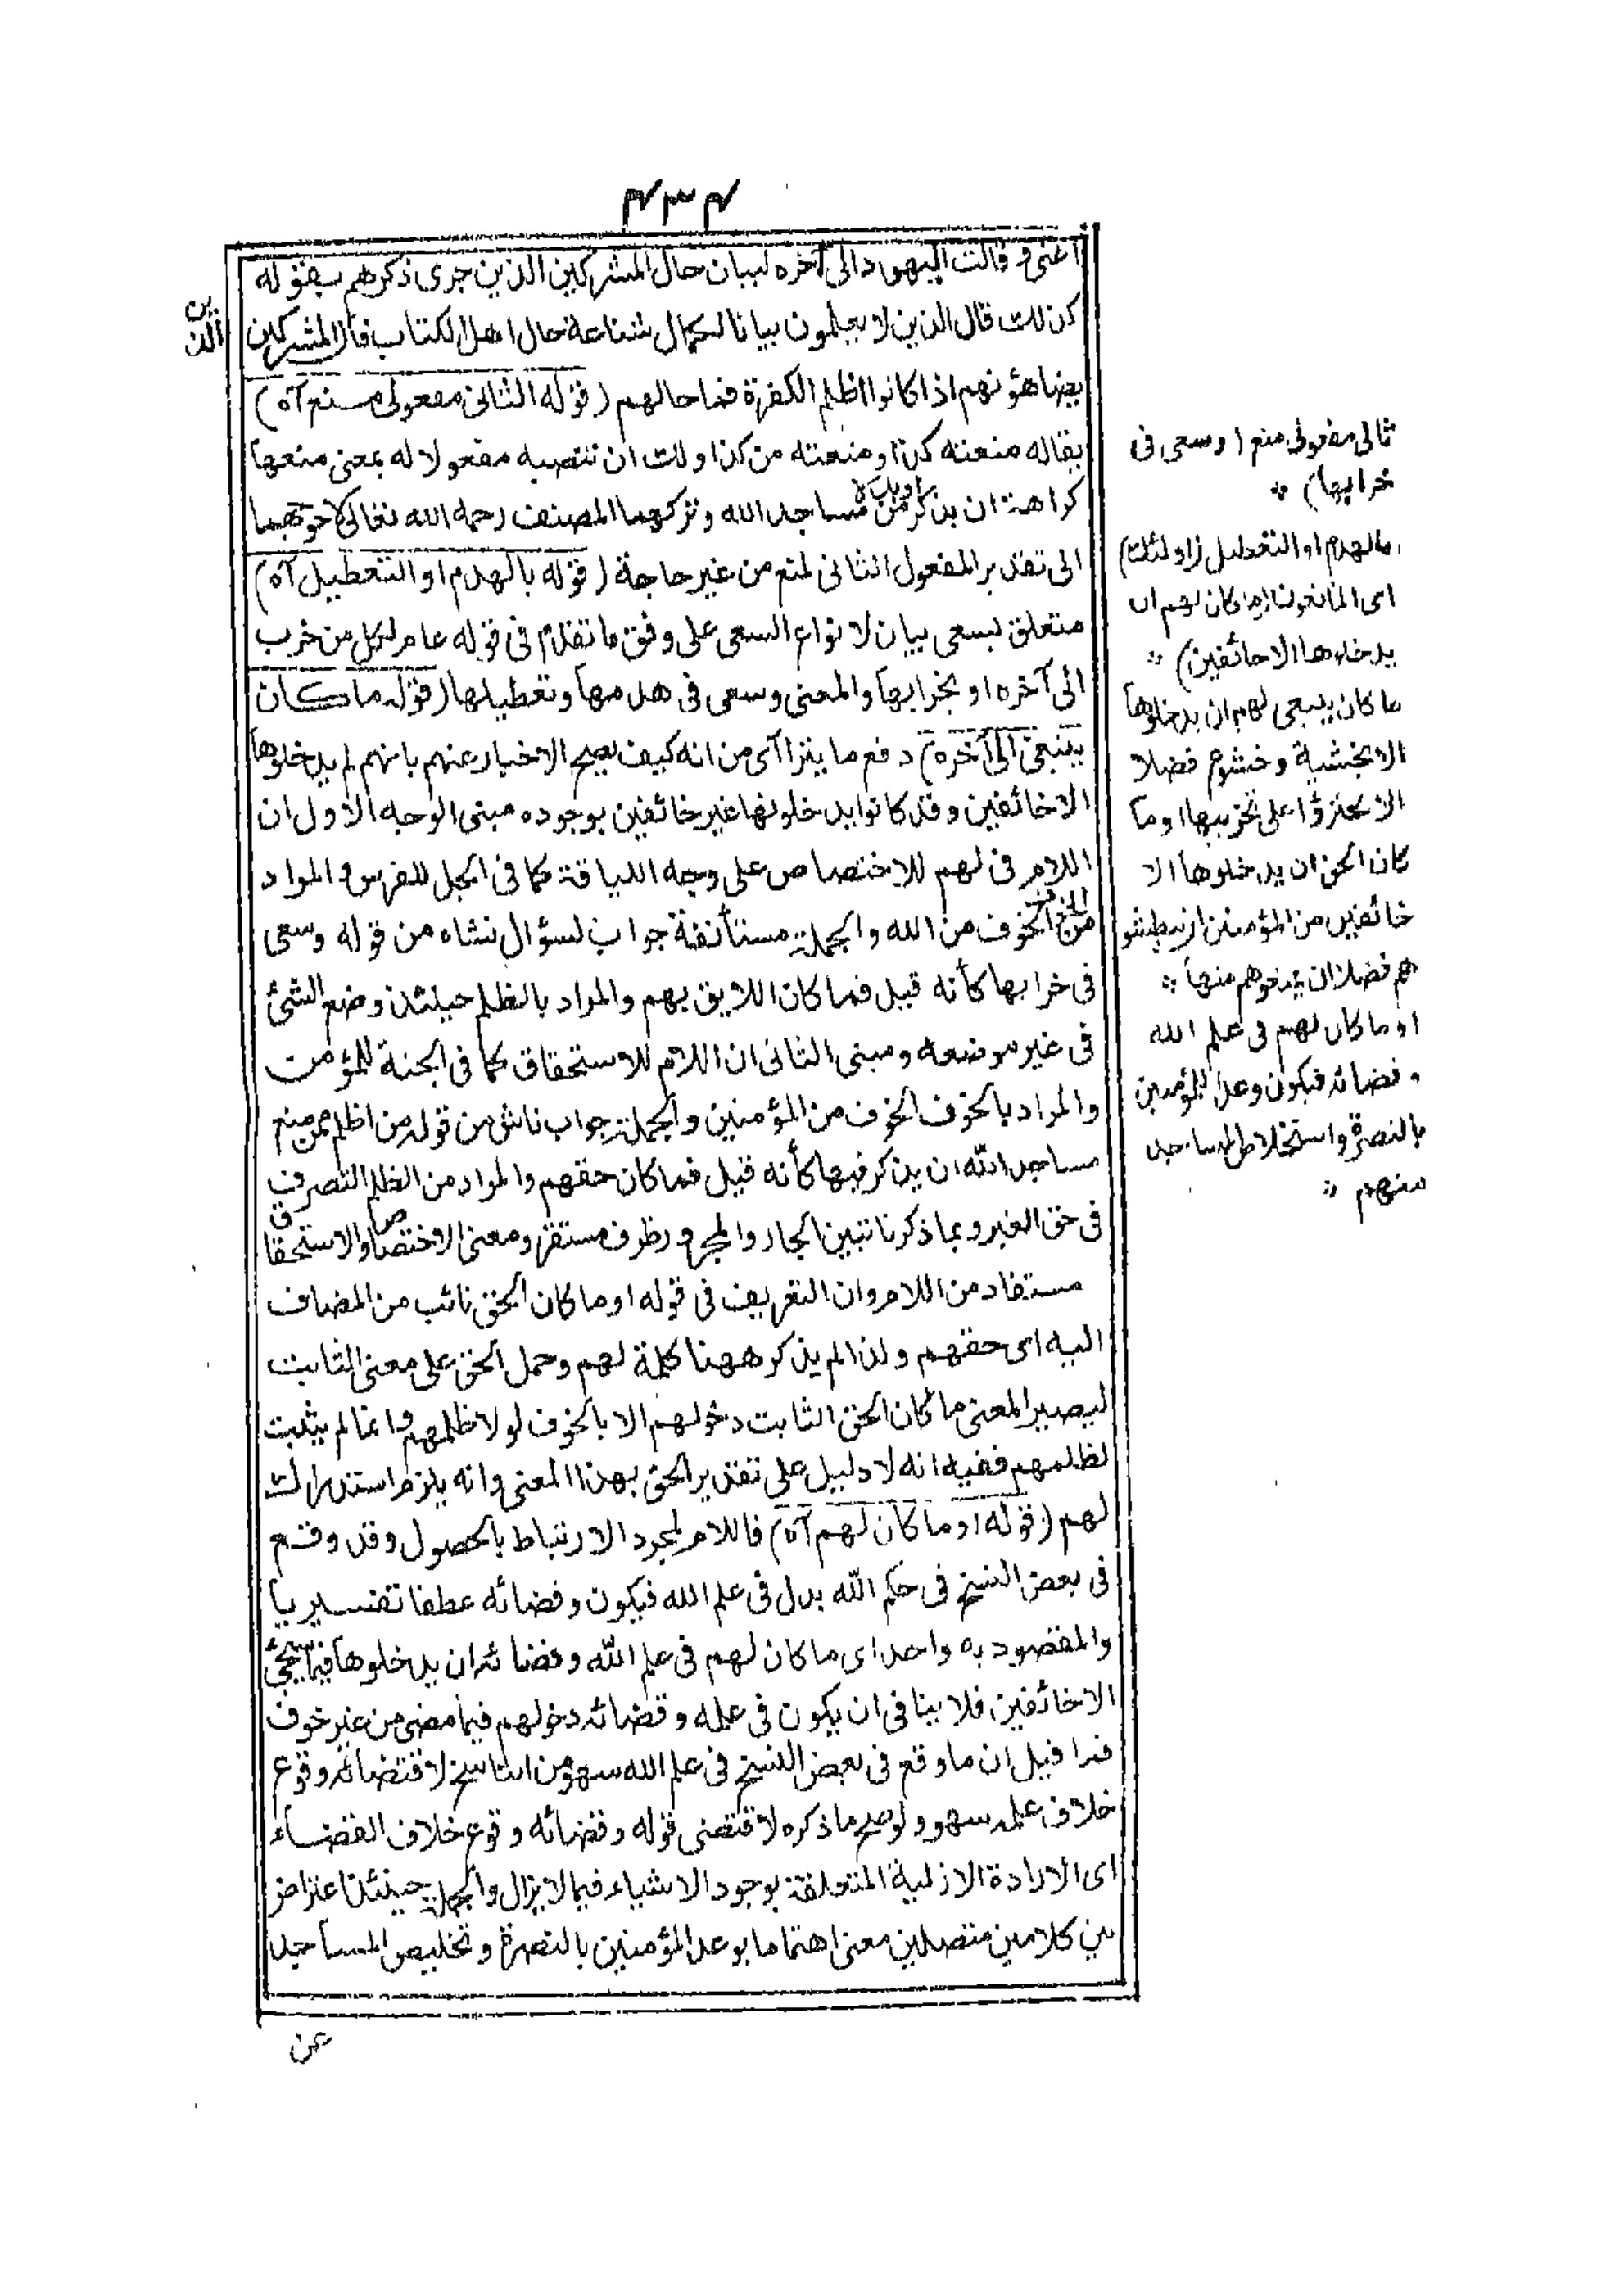 ٤٣٤
اعنى وقالت اليهود الى آخره لبيان حال المشركين الذين جرى ذكرهم بقوله
كذلك قال الذين لا يعلمون بيانا لكمال شناعة حال اهل الكتاب فان المشركين
الذين
يضاهؤنهم اذا كانوا اظلم الكفرة فما حالهم (قوله الثانى مفعولى منع آه)
يقال منعته كذا ومنعته من كذا ولك ان تنصبه مفعولا له بمعنى منعها
كراهة ان يذكر من مساجد الله وتركهما المصنف رحمه الله تعالى لاحوجهما
الى تقدير المفعول الثانى لمنع من غير حاجة (قوله بالهدم او التعطيل آه)
متعلق بسعى بيان لانواع السعى على وفق ما تقدم فى قوله عام لكل من خرب
الى آخره او بخرابها والمعنى وسعى فى هدمها وتعطيلها (قوله ما كان
ينبغى الى آخره) دفع ما يتراآى من انه كيف يصح الاخبار عنهم بانهم لم يدخلوها
الا خائفين وقد كانوا يدخلونها غير خائفين بوجوده مبنى الوجه الاول ان
اللام فى لهم للاختصاص على وجه اللياقة كما فى الجل للفرس والمراد
من الخوف الخوف من الله والجملة مستأنفة جواب لسؤال نشاء من قوله وسعى
فى خرابها كأنه قيل فما كان اللايق بهم والمراد بالظلم حينئذ وضع الشئ
فى غير موضعه ومبنى الثانى ان اللام للاستحقاق كما فى الجنة للمؤمن
والمراد بالخوف الخوف من المؤمنين والجملة جواب ناش من قوله من اظلم ممن منع
مساجد الله ان يذكر فيها كأنه قيل فما كان حقهم والمراد من الظلم التصرف
فى حق الغير وبما ذكرنا تبين الجار والمجرور ظرف مستقر ومعنى الاختصاص والاستحقاق
مستفاد من اللام وان التعريف فى قوله او ما كان الحق نائب من المضاف
اليه اى حقهم ولذا لم يذكر ههنا كلمة لهم وحمل الحق على معنى الثابت
ليصير المعنى ما كان الحق الثابت دخولهم الا بالخوف لولا ظلمهم وانما لم يثبت
لظلمهم ففيه انه لا دليل على تقدير الحق بهذا المعنى وانه يلزم استدراك
لهم (قوله او ما كان لهم آه) فاللام لمجرد الارتباط بالحصول وقد وقع
فى بعض النسخ فى حكم الله بدل فى علم الله فيكون وقضائه عطفا تفسيريا
والمقصود به واحد اى ما كان لهم فى علم الله وقضائه ان يدخلوها فيما سيجئ
الا خائفين فلا ينافى ان يكون فى علمه وقضائه دخولهم فيما مضى من غير خوف
فما قيل ان ما وقع فى بعض النسخ فى علم الله سهو من الناسخ لاقتضائه وقوع
خلاف علمه سهو ولو صح ما ذكره لاقتضى قوله وقضائه وقوع خلاف القضاء
اى الارادة الازلية المتعلقة بوجود الاشياء فيما لا يزال والجملة حينئذ اعتراض
بين كلامين متصلين معنى اهتماما بوعد المؤمنين بالنصرة وتخليص المساجد
عن
ثانى مفعولى منع (وسعى فى
خرابها) *
بالهدم او التعطيل (اولئك)
اى المانعون (ما كان لهم ان
يدخلوها الا خائفين) *
ما كان ينبغى لهم ان يدخلوها
الا بخشية وخشوع فضلا
الا يجترؤا على تخريبها او ما
كان الحق ان يدخلوها الا
خائفين من المؤمنين ان يبطشو
هم فضلا ان يمنعوهم منها *
او ما كان لهم فى علم الله
وقضائه فيكون وعدا للمؤمنين
بالنصرة واستخلاص المساجد
منهم *